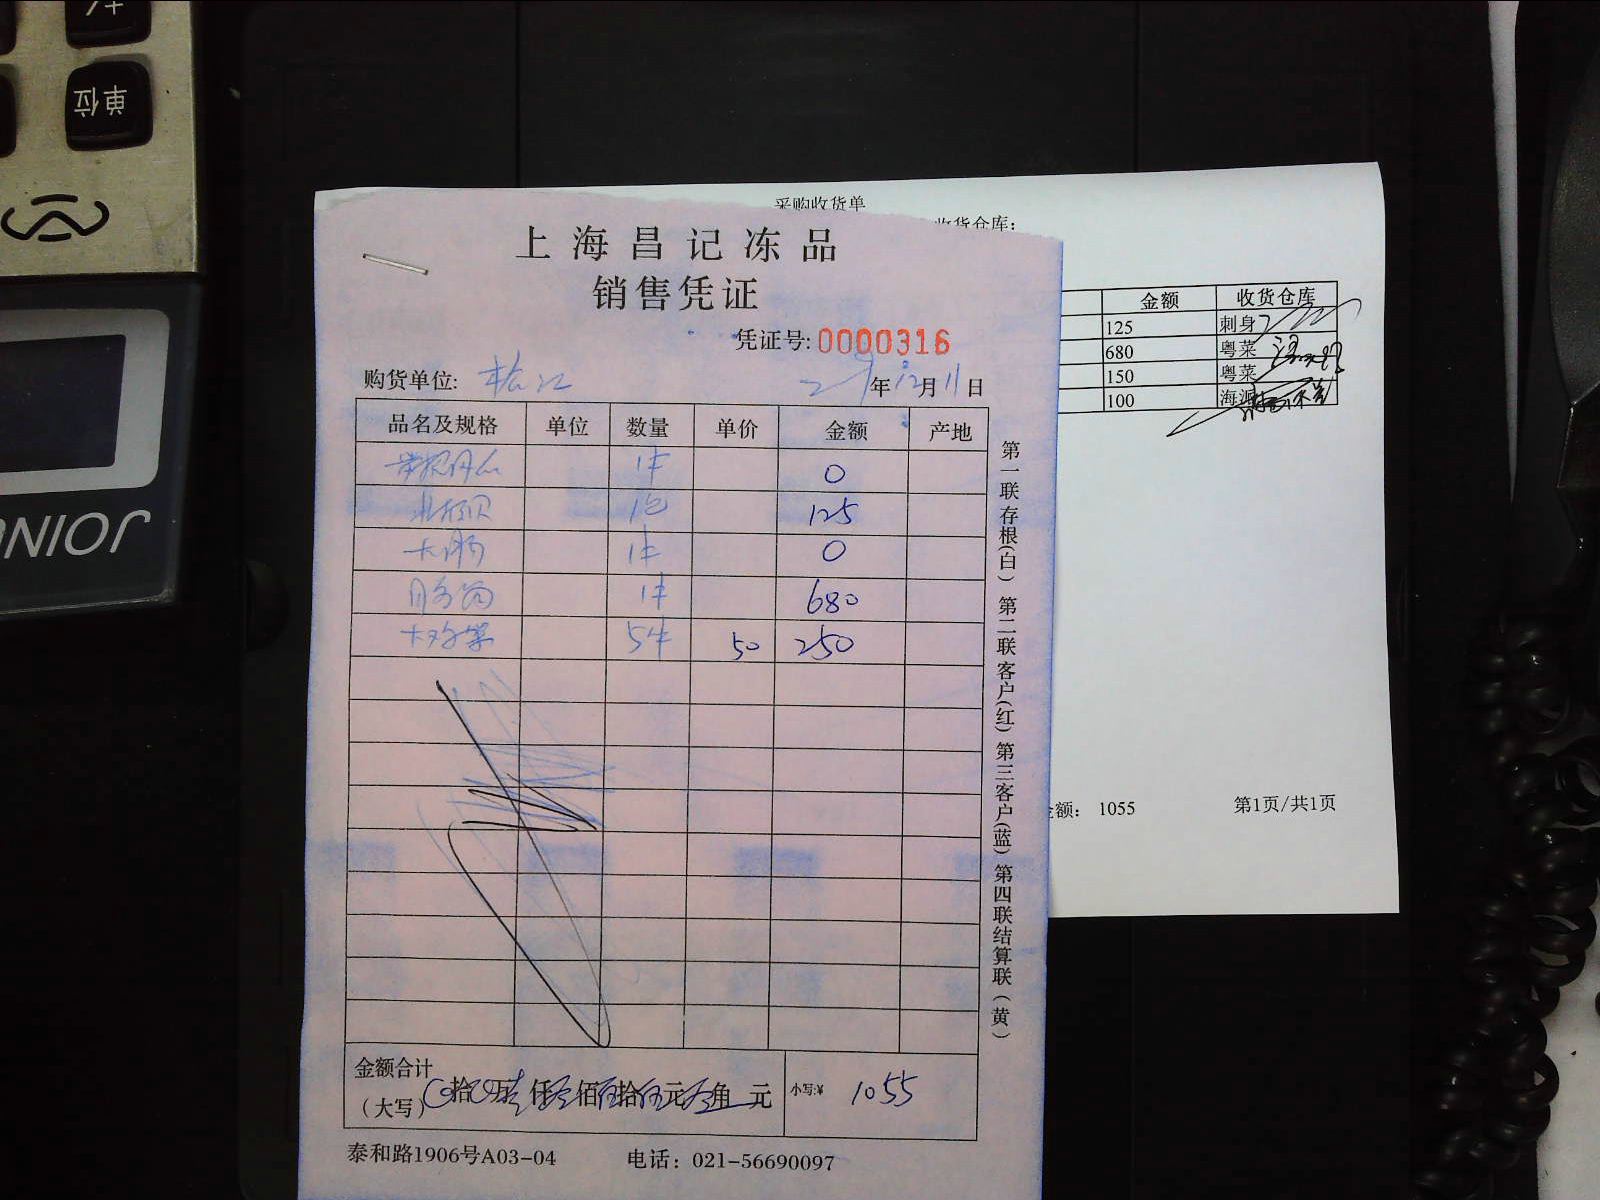 单位
JOINU
采购收货单
收货仓库:
金额 收货仓库
125 刺身
680 粤菜
150 粤菜
100 海派
金额: 1055 第1页/共1页
上海昌记冻品
销售凭证
凭证号:0000316
购货单位: 年12月11日
品名及规格 单位 数量 单价 金额 产地
1件 0
北极贝 1包 125
大肠 1件 0
1件 680
5件 50 250
第一联存根(白) 第二联客户(红) 第三客户(蓝) 第四联结算联(黄)
金额合计
(大写) 拾 万 仟 佰 拾 元 角 元 小写:¥ 1055
泰和路1906号A03-04 电话: 021-56690097